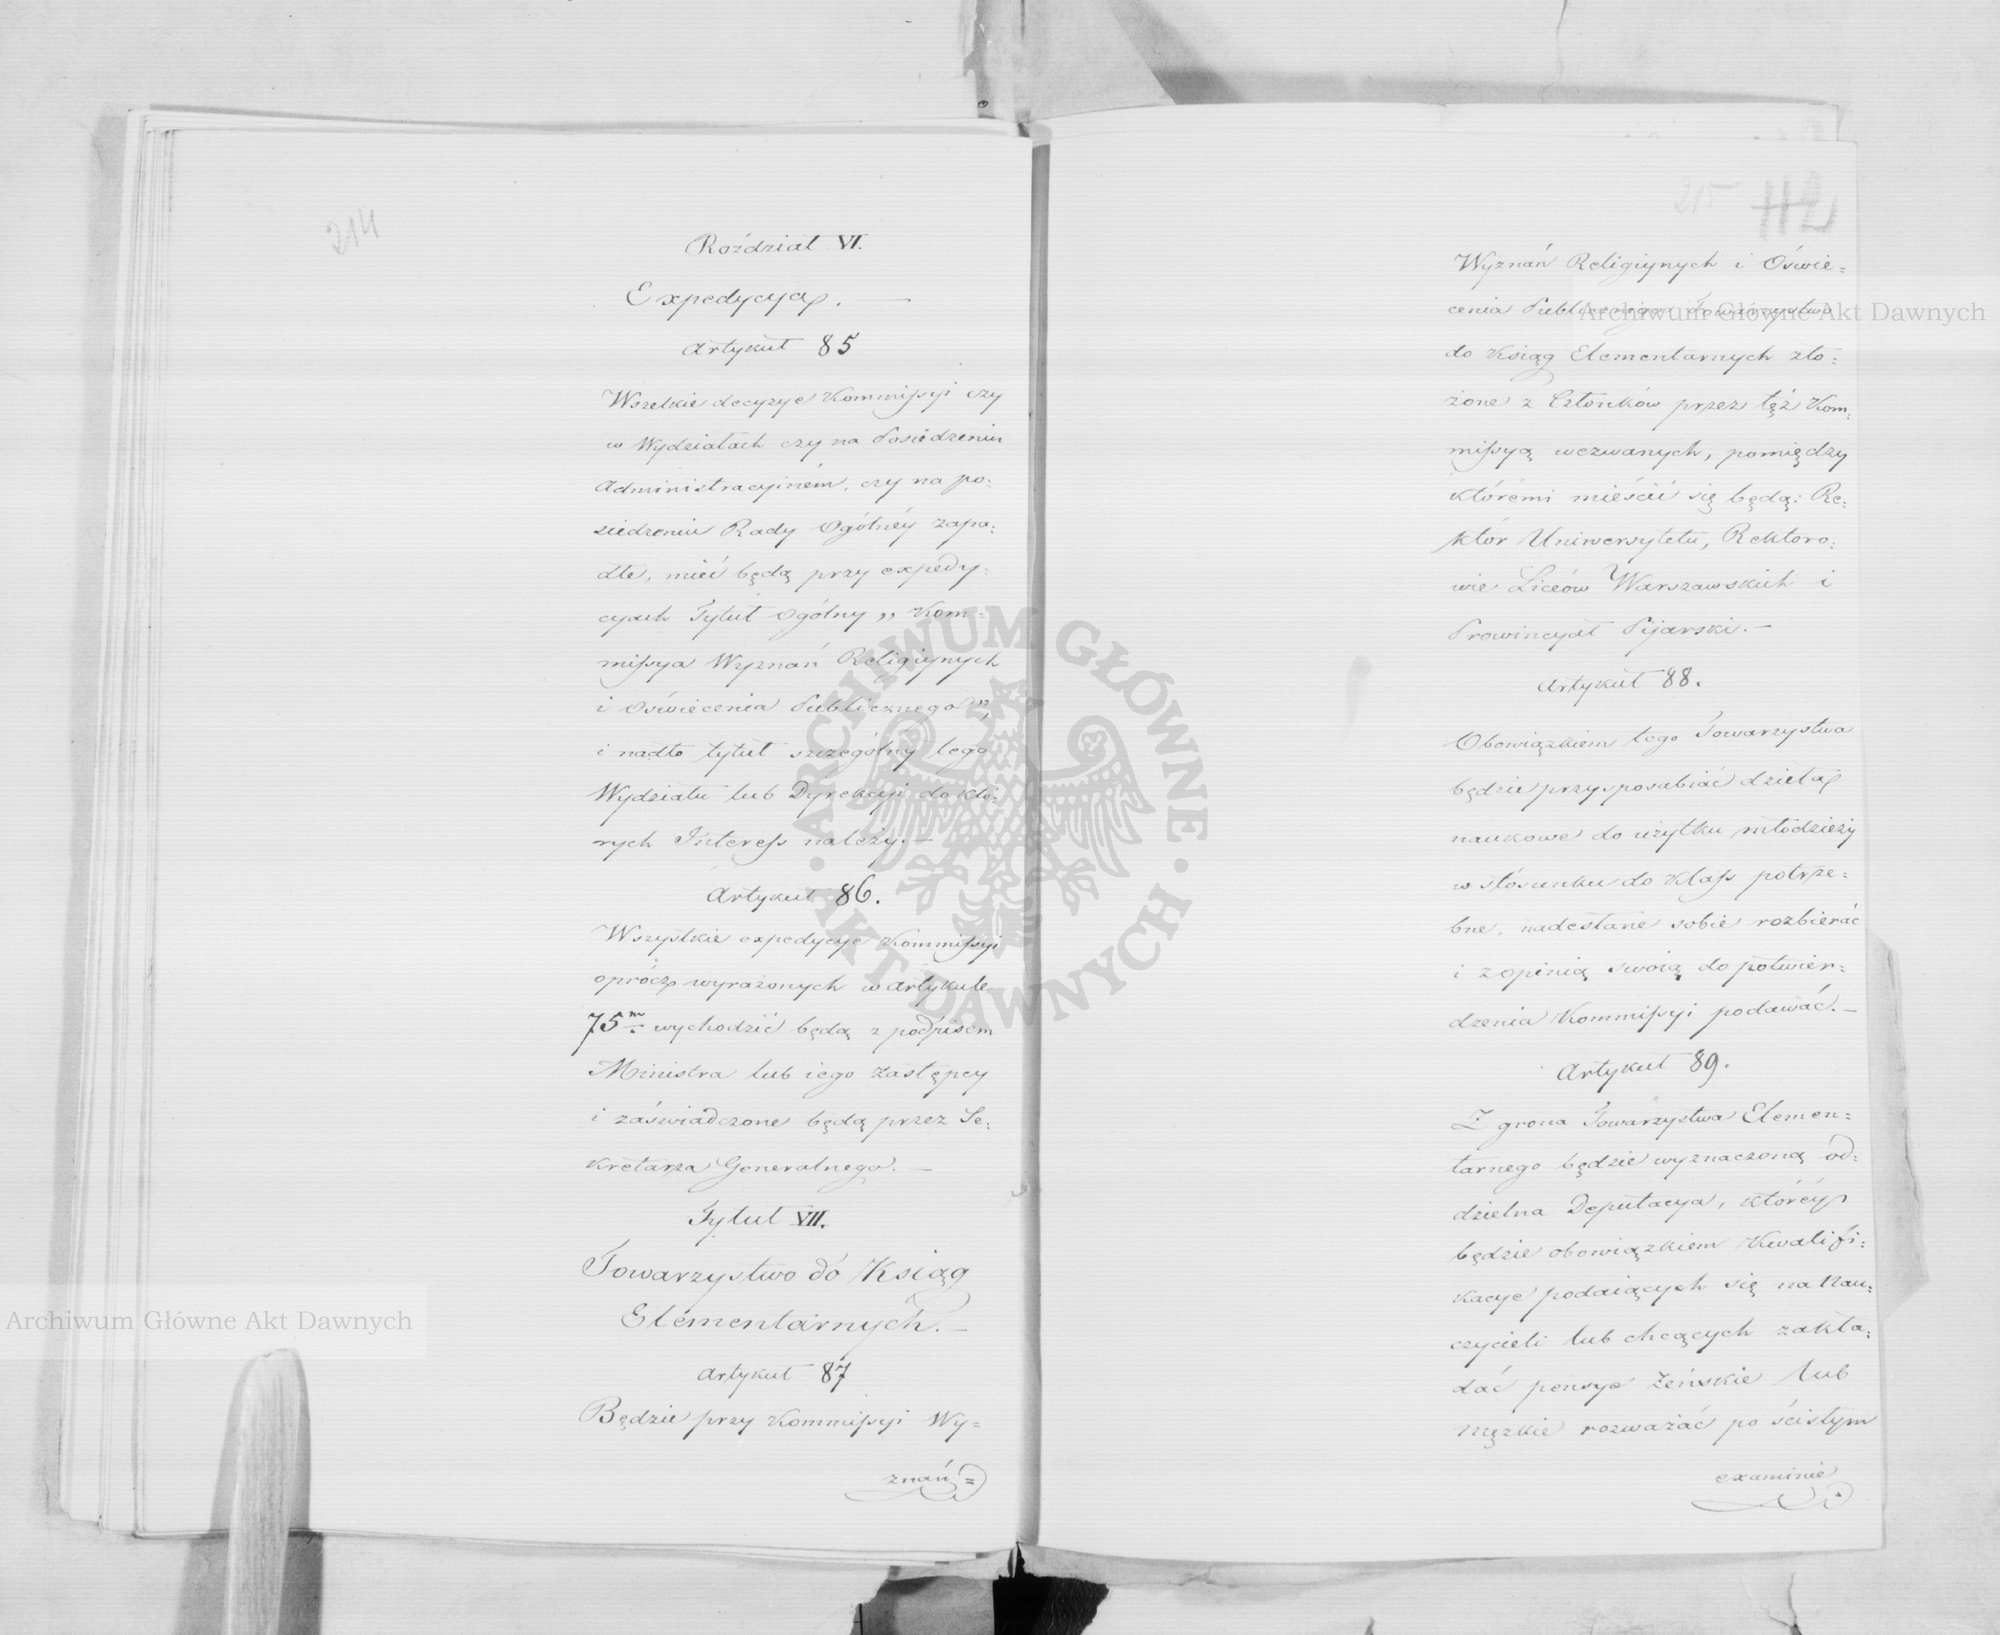 214
Rozdział VI.
Expedycya. —
Artykuł 85
Wszelkie decyzye Kommissyi czy
w Wydziałach czy na Posiedzeniu
Administracyinem, czy na po=
siedzeniu Rady Ogólnéy zapa=
dłe, mieć będą przy expedy=
cyach Tytuł Ogólny „ Kom=
missya Wyznań Religiynych
i Oświecenia Publicznego”,
i nadto tytuł szczególny tego
Wydziału lub Dyrekcyi do któ=
rych Interess należy. —
Artykuł 86.
Wszystkie expedycye Kommissyi
oprócz wyrażonych w Artykule
75m wychodzić będą z podpisem
Ministra lub iego Zastępcy
i zaświadczone będą przez Se=
kretarza Generalnego. —
Tytuł VII.
Towarzystwo do Ksiąg
Elementarnych. —
Artykuł 87
Będzie przy Kommissyi Wy=
znań=
215
Wyznań Religiynych i Oświe=
cenia Publicznego Towarzystwo
do Ksiąg Elementarnych zło=
żone z Członków przez tęż Kom=
missyą wezwanych, pomiędzy
którémi mieścić się będą: Re=
któr Uniwersytetu, Rektoro=
wie Liceów Warszawskich i
Prowincyał Pijarski. —
Artykuł 88.
Obowiązkiem tego Towarzystwa
będzie przysposabiać dzieła
naukowe do użytku młodzieży
w stósunku do Klass potrze=
bne, nadesłane sobie rozbierać
i z opinią swoią do potwier=
dzenia Kommissyi podawać. —
Artykuł 89.
Z grona Towarzystwa Elemen=
tarnego będzie wyznaczoną od=
dzielna Deputacya, któréy
będzie obowiązkiem Kwalifi=
kacye podaiących się na Nau=
czycieli lub chcących zakła=
dać pensye Żeńskie lub
Męzkie rozważać po ścisłym
examinie
Archiwum Główne Akt Dawnych
Archiwum Główne Akt Dawnych
ARCHIWUM GŁÓWNE · AKT DAWNYCH ·